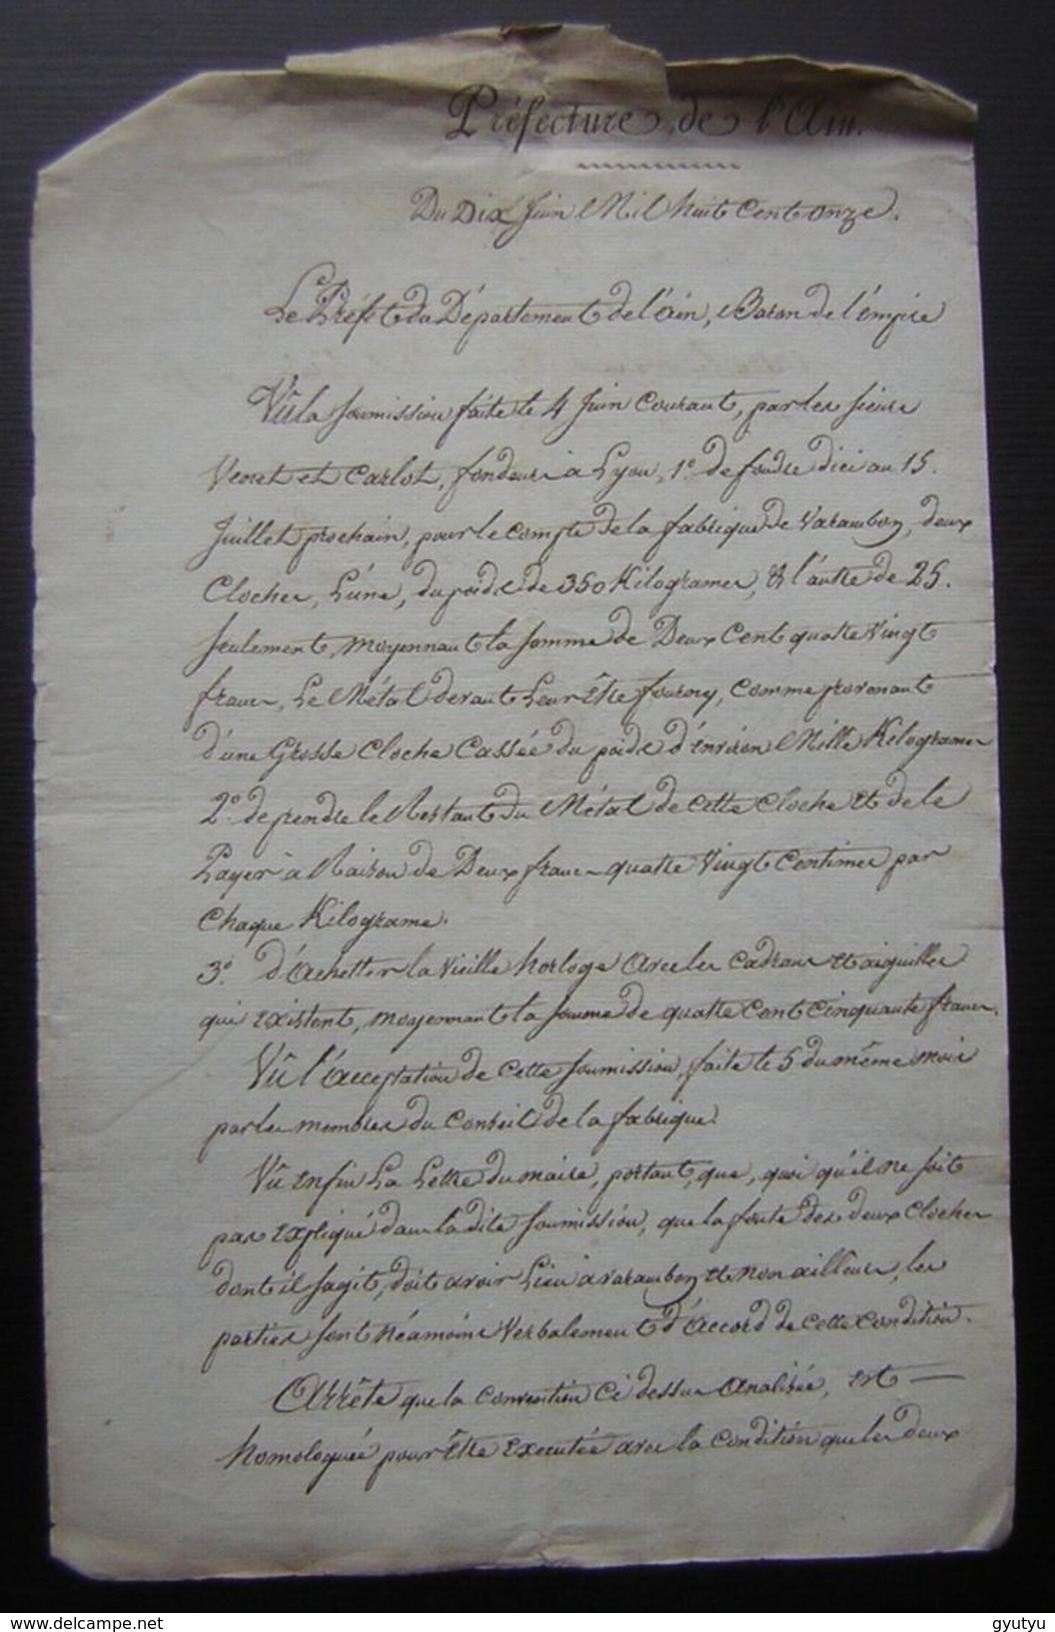 Préfecture de l'Ain.
Du Dix Juin Mil huit Cent onze.
Le Préfet du Département de l'Ain, Baron de l'Empire
Vû la Soumission faite le 4 Juin Courant, par les sieurs
Venet et Carlot, fondeurs à Lyon, 1º de fondre d'ici au 15.
Juillet prochain, pour le compte de la fabrique de Varambon, deux
Cloches, L'une, du poids de 350 Kilogrames, & l'autre de 25.
seulement, moyennant la somme de Deux Cent quatre Vingt
francs, Le Métal devant Leur Être fourny, comme provenant
d'une Grosse Cloche Cassée du poids d'environ Mille Kilogrames
2º. de prendre le Restant du Métal de cette Cloche et de le
Payer à Raison de Deux francs quatre Vingt Centimes par
Chaque Kilograme.
3º. d'Achetter la vieille horloge avec les cadrans et aiguilles
qui existent, moyennant la somme de quatre Cent Cinquante francs.
Vû l'Acceptation de cette Soumission, faite le 5 du même mois
par les membres du Conseil de la fabrique.
Vû enfin La Lettre du maire, portant, que, quoi qu'il ne soit
pas expliqué dans la dite Soumission, que la fonte des deux Cloches
dont il sagit, doit avoir Lieu a varambon et non ailleurs, les
parties sont Néamoins Verbalement d'Accord de cette condition.
Arrête que la convention Ci dessus Analisée, est —
homologuée pour Être executée avec la condition que les deux
www.delcampe.net
gyutyu